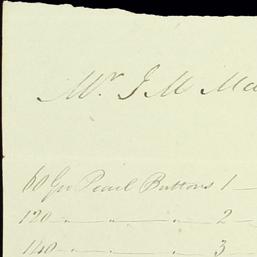 Mr. J M Ma
60 Gro Pearl Buttons 1 —
120 — " — " — " — 2 —
140 — " — " — " — 3 —